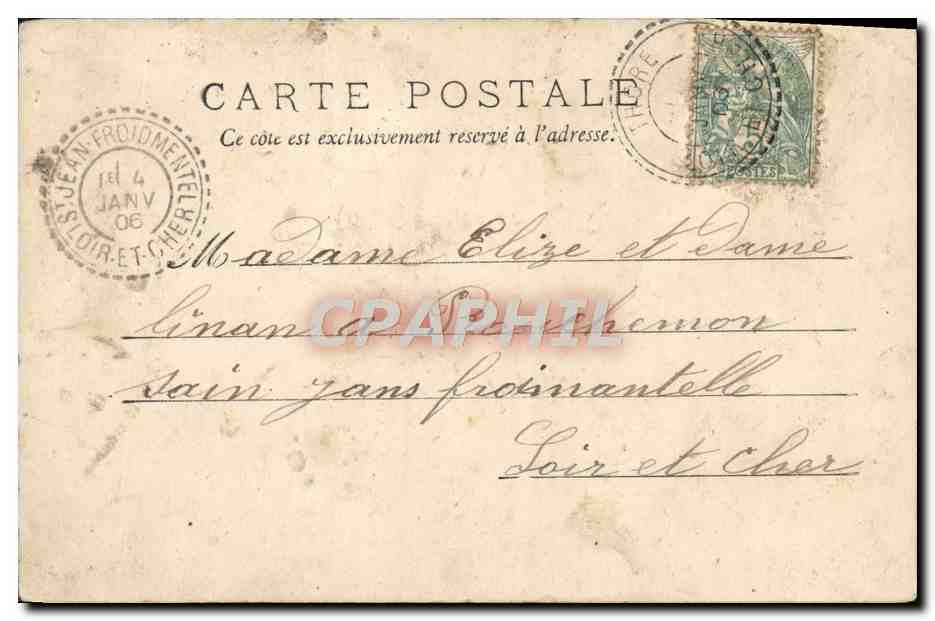 CARTE POSTALE
Ce côte est exclusivement reservé à l'adresse.
THORE
JANV
06
POSTES
ST JEAN-FROIDMENTEL
1ᵉ 4
JANV
06
LOIR-ET-CHER
Madame Elize et dame
linan a
CPAPHIL
sain jans froimantelle
Loir et Cher